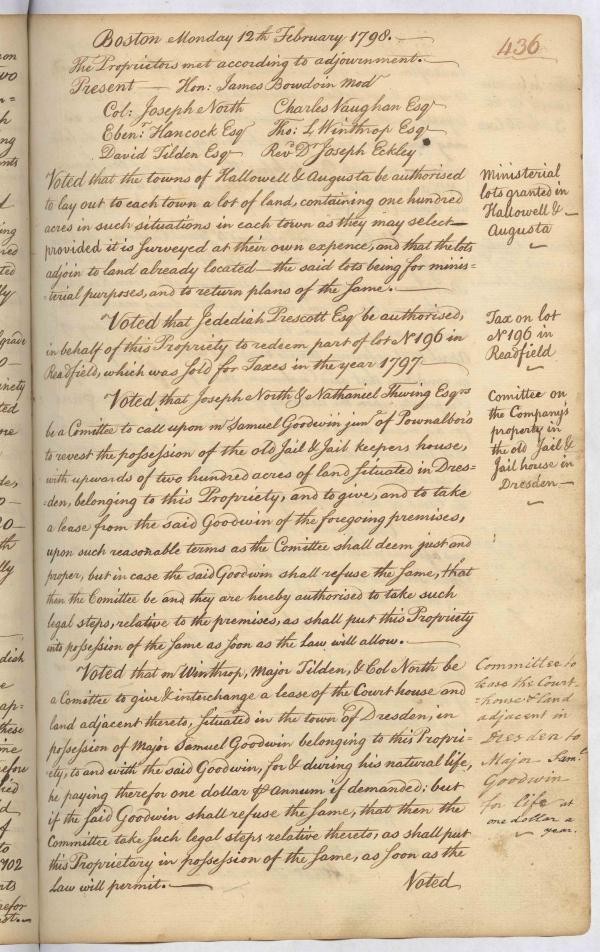 Boston Monday 12th February 1798.
436
The Proprietors met according to adjournment.
Present — Hon: James Bowdoin Modr
Col: Joseph North Charles Vaughan Esqr
Ebenr Hancock Esqr Tho: L Winthrop Esqr
David Tilden Esqr Revd Dr Joseph Eckley
Voted that the towns of Hallowell & Augusta be authorised
to lay out to each town a lot of land, containing one hundred
acres in such situations in each town as they may select—
provided it is surveyed at their own expence, and that the lots
adjoin to land already located — the said lots being for minis=
=terial purposes, and to return plans of the same.
Ministerial
lots granted in
Hallowell &
Augusta
Voted that Jedediah Prescott Esqr be authorised,
in behalf of this Propriety to redeem part of lot No 196 in
Readfield, which was sold for Taxes in the year 1797
Tax on lot
No 196 in
Readfield
Voted that Joseph North & Nathaniel Thwing Esqrs
be a Comittee to call upon mr Samuel Goodwin junr of Pownalboro
to revest the possession of the old Jail & Jail keepers house,
with upwards of two hundred acres of land situated in Dres=
=den, belonging to this Propriety, and to give, and to take
a lease from the said Goodwin of the foregoing premises,
upon such reasonable terms as the Comittee shall deem just and
proper, but in case the said Goodwin shall refuse the same, that
then the Comittee be and they are hereby authorised to take such
legal steps, relative to the premises, as shall put this Propriety
into possession of the same as soon as the Law will allow.
Comittee on
the Company's
property in
the old Jail &
Jail house in
Dresden
Voted that mr Winthrop, Major Tilden, & Col North be
a Comittee to give & interchange a lease of the Court house and
land adjacent thereto, situated in the town of Dresden, in
possession of Major Samuel Goodwin belonging to this Propri=
ety, to and with the said Goodwin, for & during his natural life,
he paying therefor one dollar ⅌ annum if demanded; but
if the said Goodwin shall refuse the same, that then the
Committee take such legal steps relative thereto, as shall put
this Proprietary in possession of the same, as soon as the
Law will permit.
Voted
Committee to
lease the Court-
=house & land
adjacent in
Dresden to
Major Saml
Goodwin
for life at
one dollar a
year.